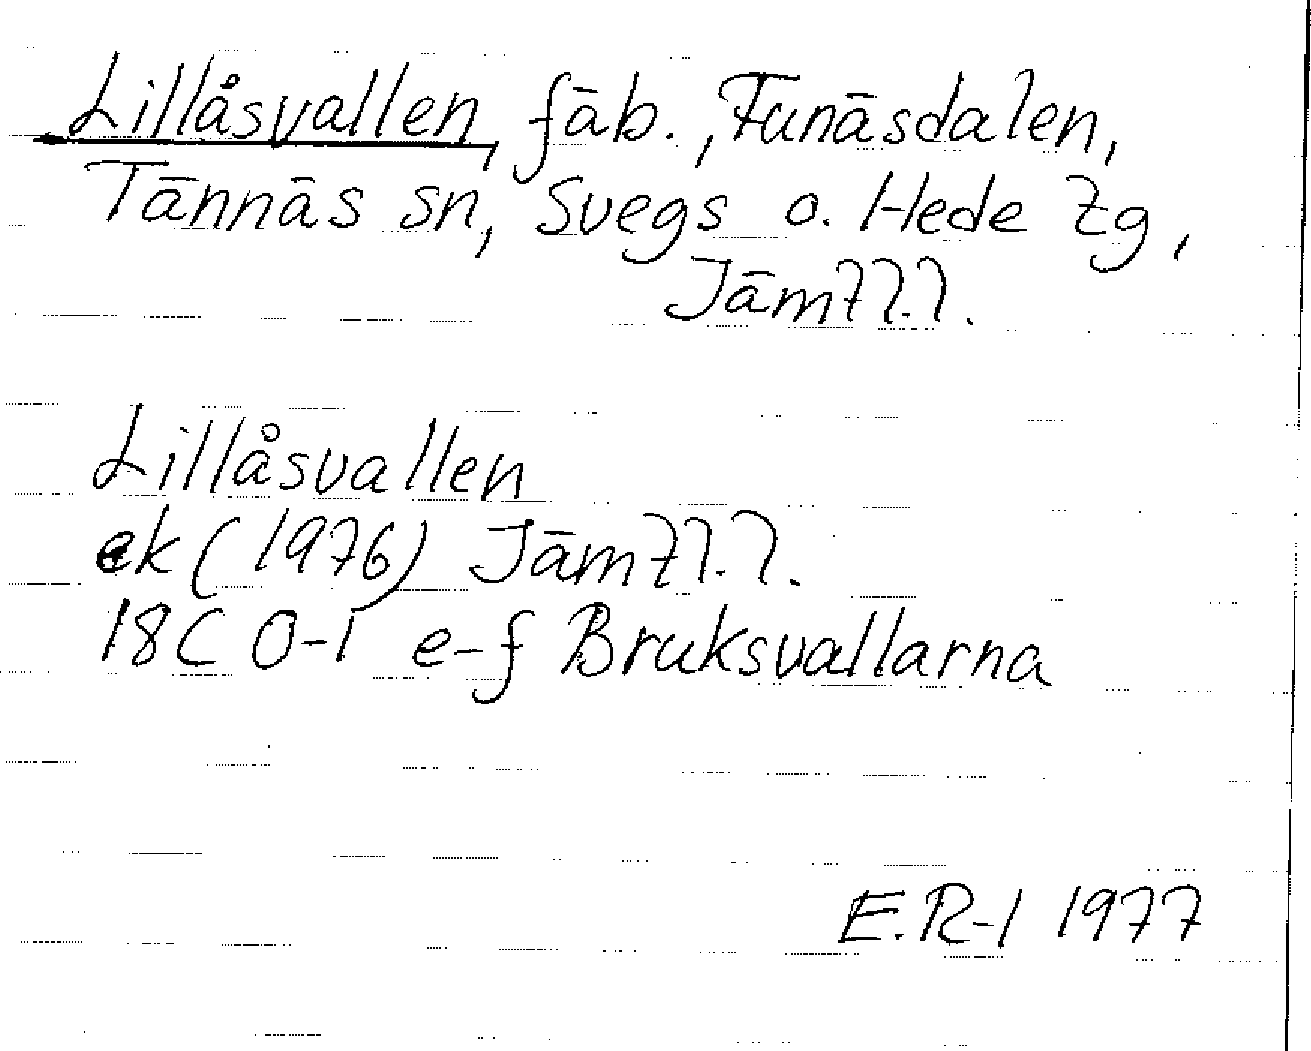 Lillåsvallen, fäb., Funäsdalen,
Tännäs sn, Svegs o. Hede tg,
Jämtl.l.
Lillåsvallen
ek (1976) Jämtl.l.
18C 0-1 e-f Bruksvallarna
E.R-l 1977